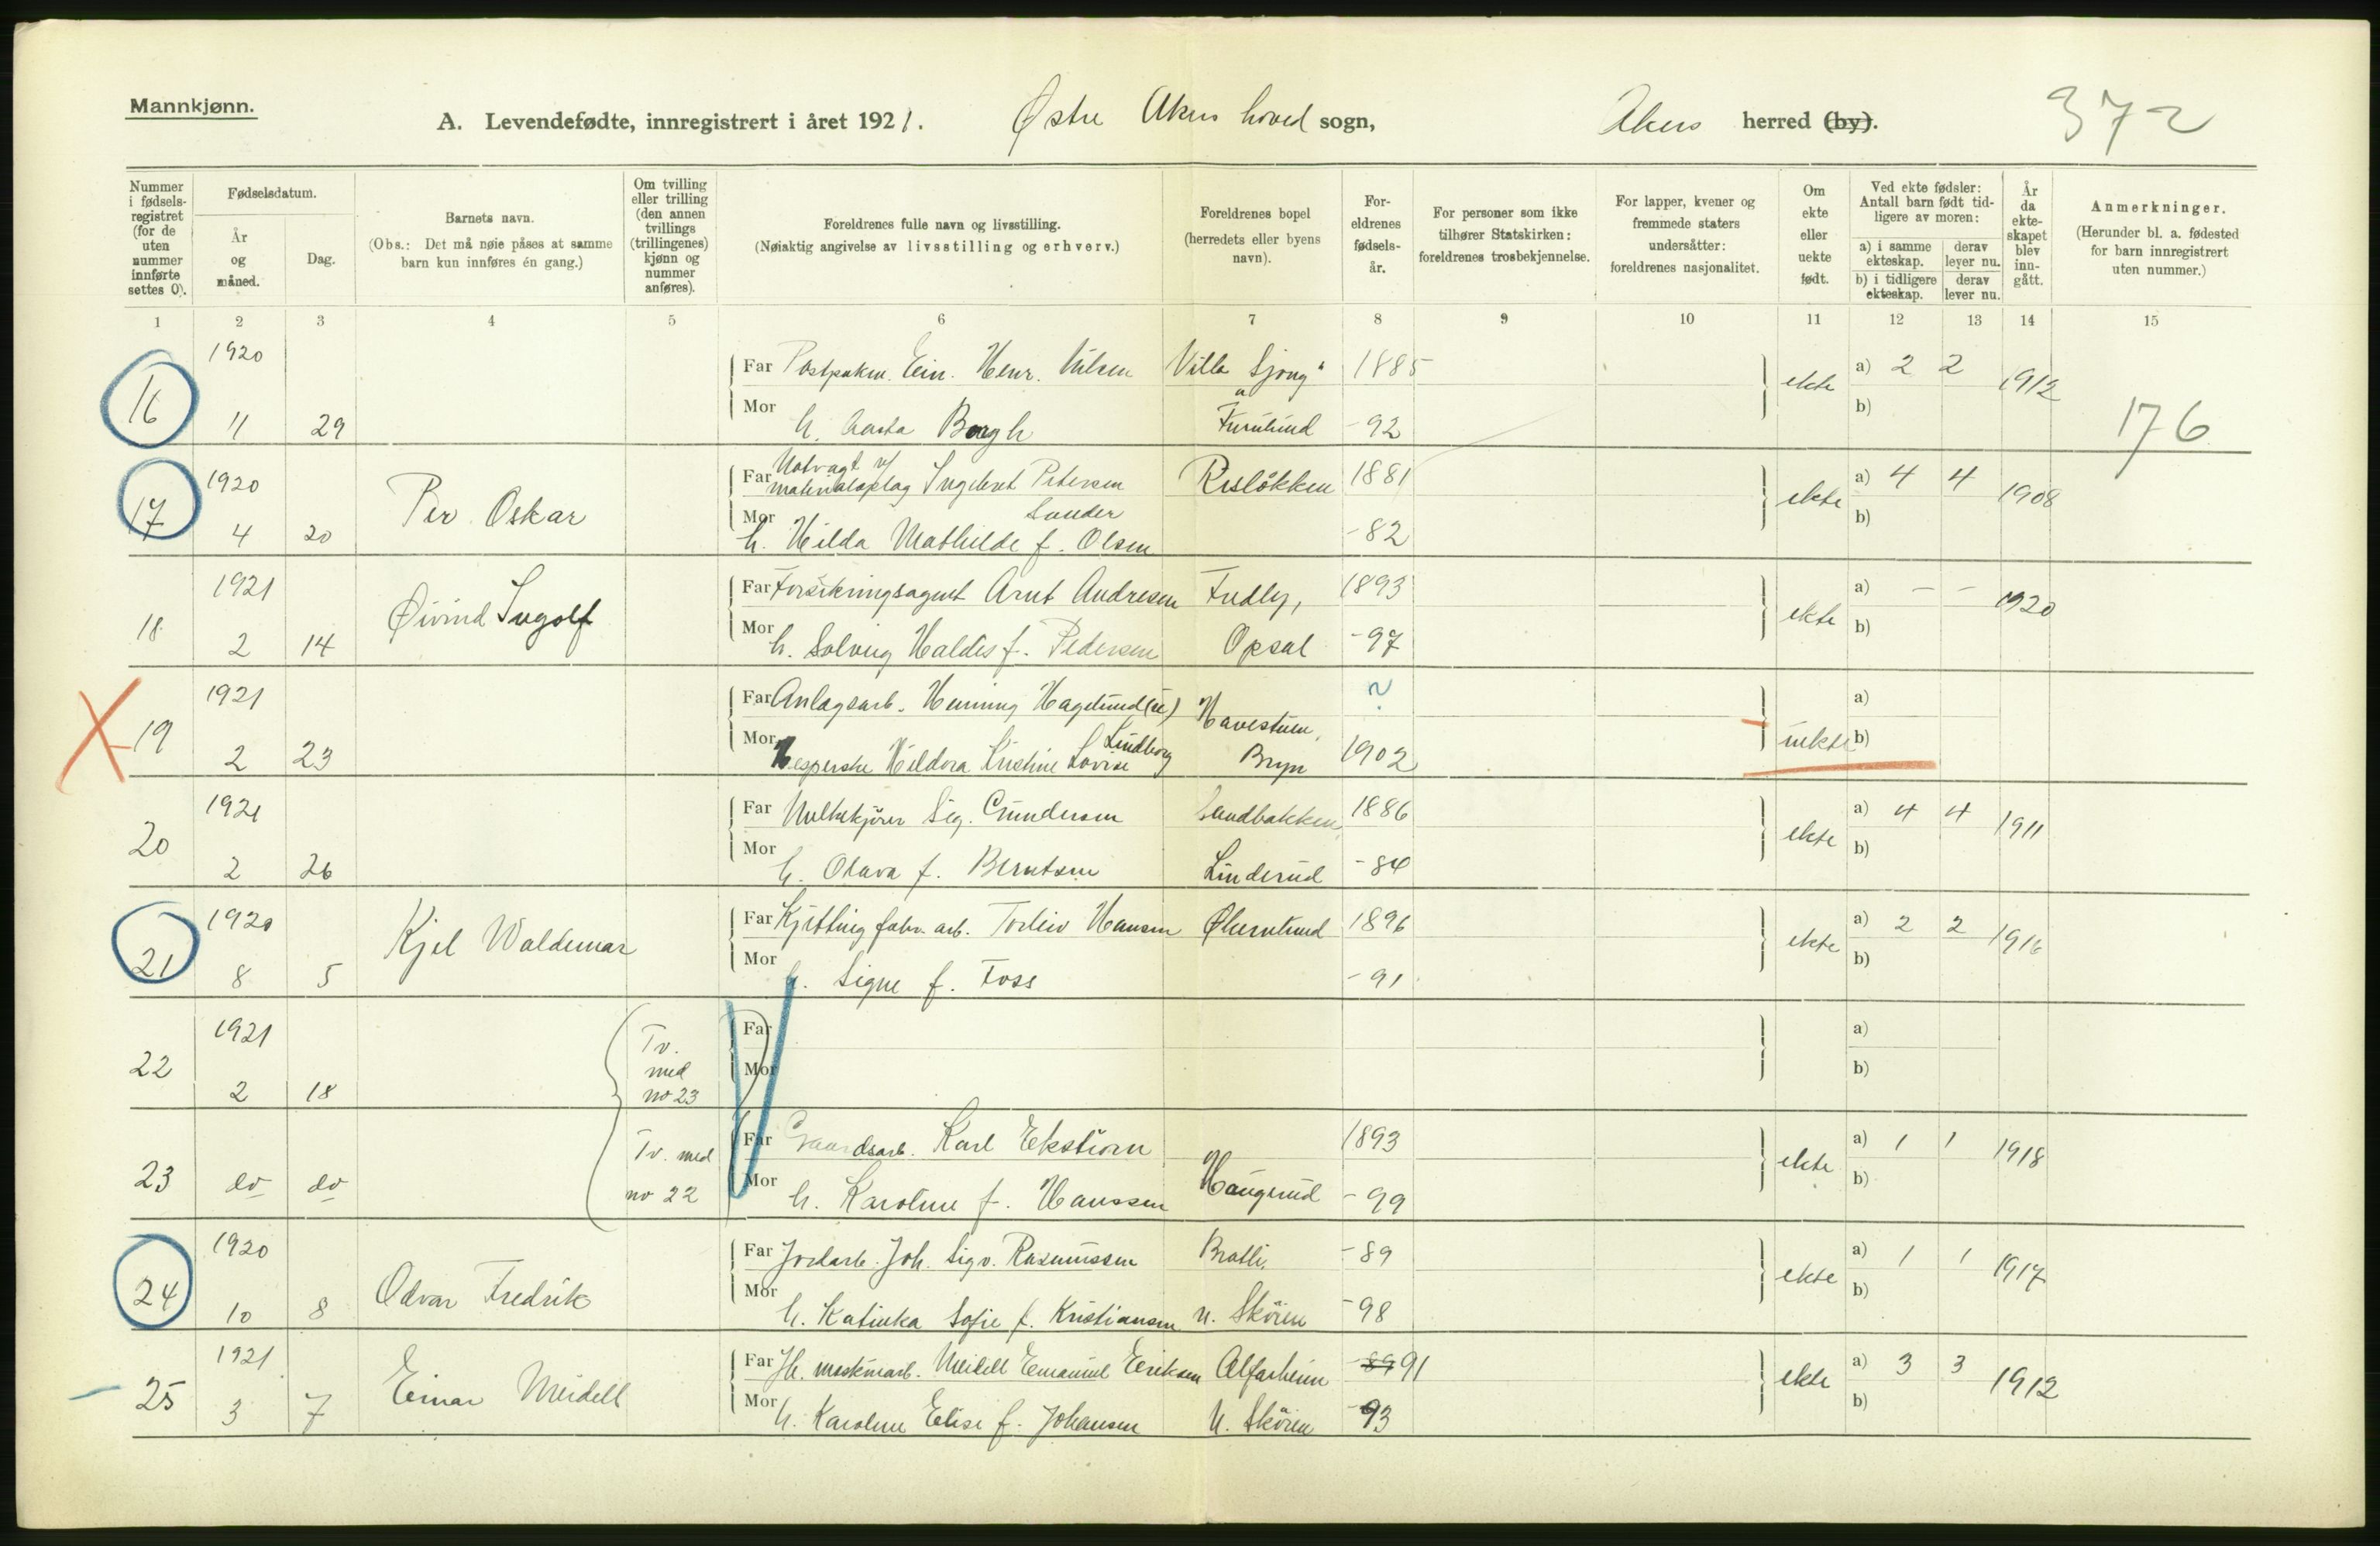 Mannkjønn.
A. Levendefødte, innregistrert i året 1921. Østre Akers hoved sogn, Akers herred (by). 372
Nummer i fødsels-registret (for de uten nummer innførte settes 0).
Fødselsdatum.
År og måned.
Dag.
Barnets navn.
(Obs.: Det må nøie påses at samme barn kun innføres én gang.)
Om tvilling eller trilling (den annen tvillings (trillingenes) kjønn og nummer anføres).
Foreldrenes fulle navn og livsstilling.
(Nøiaktig angivelse av livsstilling og erhverv.)
Foreldrenes bopel (herredets eller byens navn).
For-eldrenes fødsels-år.
For personer som ikke tilhører Statskirken: foreldrenes trosbekjennelse.
For lapper, kvener og fremmede staters undersåtter: foreldrenes nasjonalitet.
Om ekte eller uekte født.
Ved ekte fødsler: Antall barn født tid-ligere av moren:
a) i samme ekteskap. derav lever nu.
b) i tidligere ekteskap. derav lever nu.
År da ekte-skapet blev inn-gått.
Anmerkninger.
(Herunder bl. a. fødested for barn innregistrert uten nummer.)
1 2 3 4 5 6 7 8 9 10 11 12 13 14 15
16 1920 Far Postpakm. Ein. Henr. Nilsen Villa Sjong 1885 ekte a) 2 2 1912
11 29 Mor h. Aasta Bergh Furulund -92 b) 176
17 1920 Per Oskar Far Natvagt v/ materialoplag Ingebret Petersen Sander Risløkken 1881 ekte a) 4 4 1908
4 20 Mor h. Hilda Mathilde f. Olsen -82 b)
18 1921 Øivind Ingolf Far Forsikringsagent Arnt Andresen Fredly, 1893 ekte a) - - 1920
2 14 Mor h. Solveig Haldis f. Pedersen Opsal -97 b)
19 1921 Far Anlægsarb. Henning Hagelund (u) Havestuen, ? uekte a)
2 23 Mor Hesperske Hildora Kristine Lovise Lindberg Bryn 1902 b)
20 1921 Far Melkekjører Sig. Gundersen Sandbakken, 1886 ekte a) 4 4 1911
2 26 Mor h. Olava f. Berntsen Linderud -84 b)
21 1920 Kjel Waldemar Far Kjetting fabr. arb. Torleiv Hansen Ølernlund 1896 ekte a) 2 2 1916
8 5 Mor h. Signe f. Foss -91 b)
22 1921 Tv. med no 23 Far a)
2 18 Mor b)
23 do do Tv. med no 22 Far Gaardsarb. Karl Ekström 1893 ekte a) 1 1 1918
Mor h. Karoline f. Hanssen Haugerud -99 b)
24 1920 Odvar Fredrik Far Jordarb. Joh. Sigv. Rasmussen Bratli, -89 ekte a) 1 1 1917
10 8 Mor h. Katinka Sofie f. Kristiansen n. Skøien -98 b)
25 1921 Einar Meidell Far Jh. maskinarb. Meidell Emanuel Eriksen Alfarheim -89 91 ekte a) 3 3 1912
3 7 Mor h. Karoline Elise f. Johansen N. Skøien -93 b)